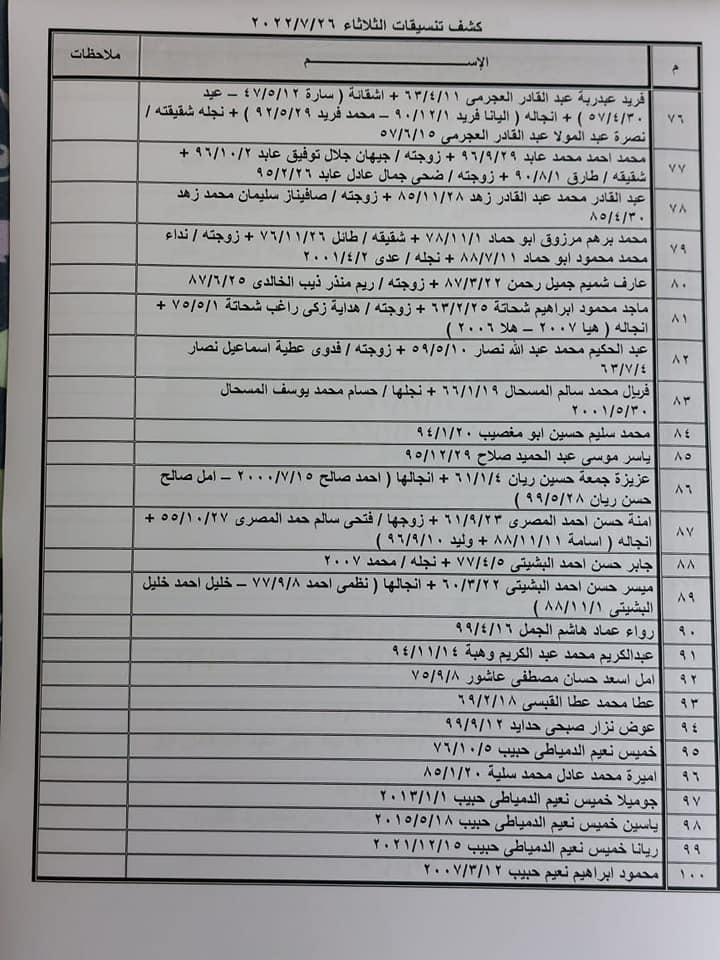 كشف تنسيقات الثلاثاء ٢٠٢٢/٧/٢٦
م الإســـــــــــــــم ملاحظات
٧٦ فريد عبدربة عبد القادر العجرمى ٦٣/٤/١١ + اشقائة ( سارة ٤٧/٥/١٢ – عيد
٥٧/٤/٣٠ ) + انجاله ( اليانا فريد ٩٠/١٢/١ – محمد فريد ٩٢/٥/٢٩ ) + نجله شقيقته /
نصرة عبد المولا عبد القادر العجرمى ٥٧/٦/١٥
٧٧ محمد احمد محمد عابد ٩٦/٩/٢٩ + زوجته / جيهان جلال توفيق عابد ٩٦/١٠/٢ +
شقيقه / طارق ٩٠/٨/١ + زوجته / ضحى جمال عادل عابد ٩٥/٢/٢٦
٧٨ عبد القادر محمد عبد القادر زهد ٨٥/١١/٢٨ + زوجته / صافيناز سليمان محمد زهد
٨٥/٤/٣٠
٧٩ محمد برهم مرزوق ابو حماد ٧٨/١١/١ + شقيقه / طائل ٧٦/١١/٢٦ + زوجته / نداء
محمد محمود ابو حماد ٨٨/٧/١١ + نجله / عدى ٢٠٠١/٤/٢
٨٠ عارف شميم جميل رحمن ٨٧/٣/٢٢ + زوجته / ريم منذر ذيب الخالدى ٨٧/٦/٢٥
٨١ ماجد محمود ابراهيم شحاتة ٦٣/٢/٢٥ + زوجته / هداية زكى راغب شحاتة ٧٥/٥/١ +
انجاله ( هيا ٢٠٠٧ – هلا ٢٠٠٦ )
٨٢ عبد الحكيم محمد عبد الله نصار ٥٩/٥/١٠ + زوجته / فدوى عطية اسماعيل نصار
٦٣/٧/٤
٨٣ فريال محمد سالم المسحال ٦٦/١/١٩ + نجلها / حسام محمد يوسف المسحال
٢٠٠١/٥/٣٠
٨٤ محمد سليم حسين ابو مغصيب ٩٤/١/٢٠
٨٥ ياسر موسى عبد الحميد صلاح ٩٥/١٢/٢٩
٨٦ عزيزة جمعة حسين ريان ٦١/١/٤ + انجالها ( احمد صالح ٢٠٠٠/٧/١٥ – امل صالح
حسن ريان ٩٩/٥/٢٨ )
٨٧ امنة حسن احمد المصرى ٦١/٩/٢٣ + زوجها / فتحى سالم حمد المصرى ٥٥/١٠/٢٧ +
انجاله ( اسامة ٨٨/١١/١١ + وليد ٩٦/٩/١٠ )
٨٨ جابر حسن احمد البشيتى ٧٧/٤/٥ + نجله / محمد ٢٠٠٧
٨٩ ميسر حسن احمد البشيتى ٦٠/٣/٢٢ + انجالها ( نظمى احمد ٧٧/٩/٨ – خليل احمد خليل
البشيتى ٨٨/١١/١ )
٩٠ رواء عماد هاشم الجمل ٩٩/٤/١٦
٩١ عبدالكريم محمد عبد الكريم وهبة ٩٤/١١/١٤
٩٢ امل اسعد حسان مصطفى عاشور ٧٥/٩/٨
٩٣ عطا محمد عطا القبسى ٦٩/٢/١٨
٩٤ عوض نزار صبحى حدايد ٩٩/٩/١٢
٩٥ خميس نعيم الدمياطى حبيب ٧٦/١٠/٥
٩٦ اميرة محمد عادل محمد سلية ٨٥/١/٢٠
٩٧ جوميلا خميس نعيم الدمياطى حبيب ٢٠١٣/١/١
٩٨ ياسين خميس نعيم الدمياطى حبيب ٢٠١٥/٥/١٨
٩٩ ريانا خميس نعيم الدمياطى حبيب ٢٠٢١/١٢/١٥
١٠٠ محمود ابراهيم نعيم حبيب ٢٠٠٧/٣/١٢